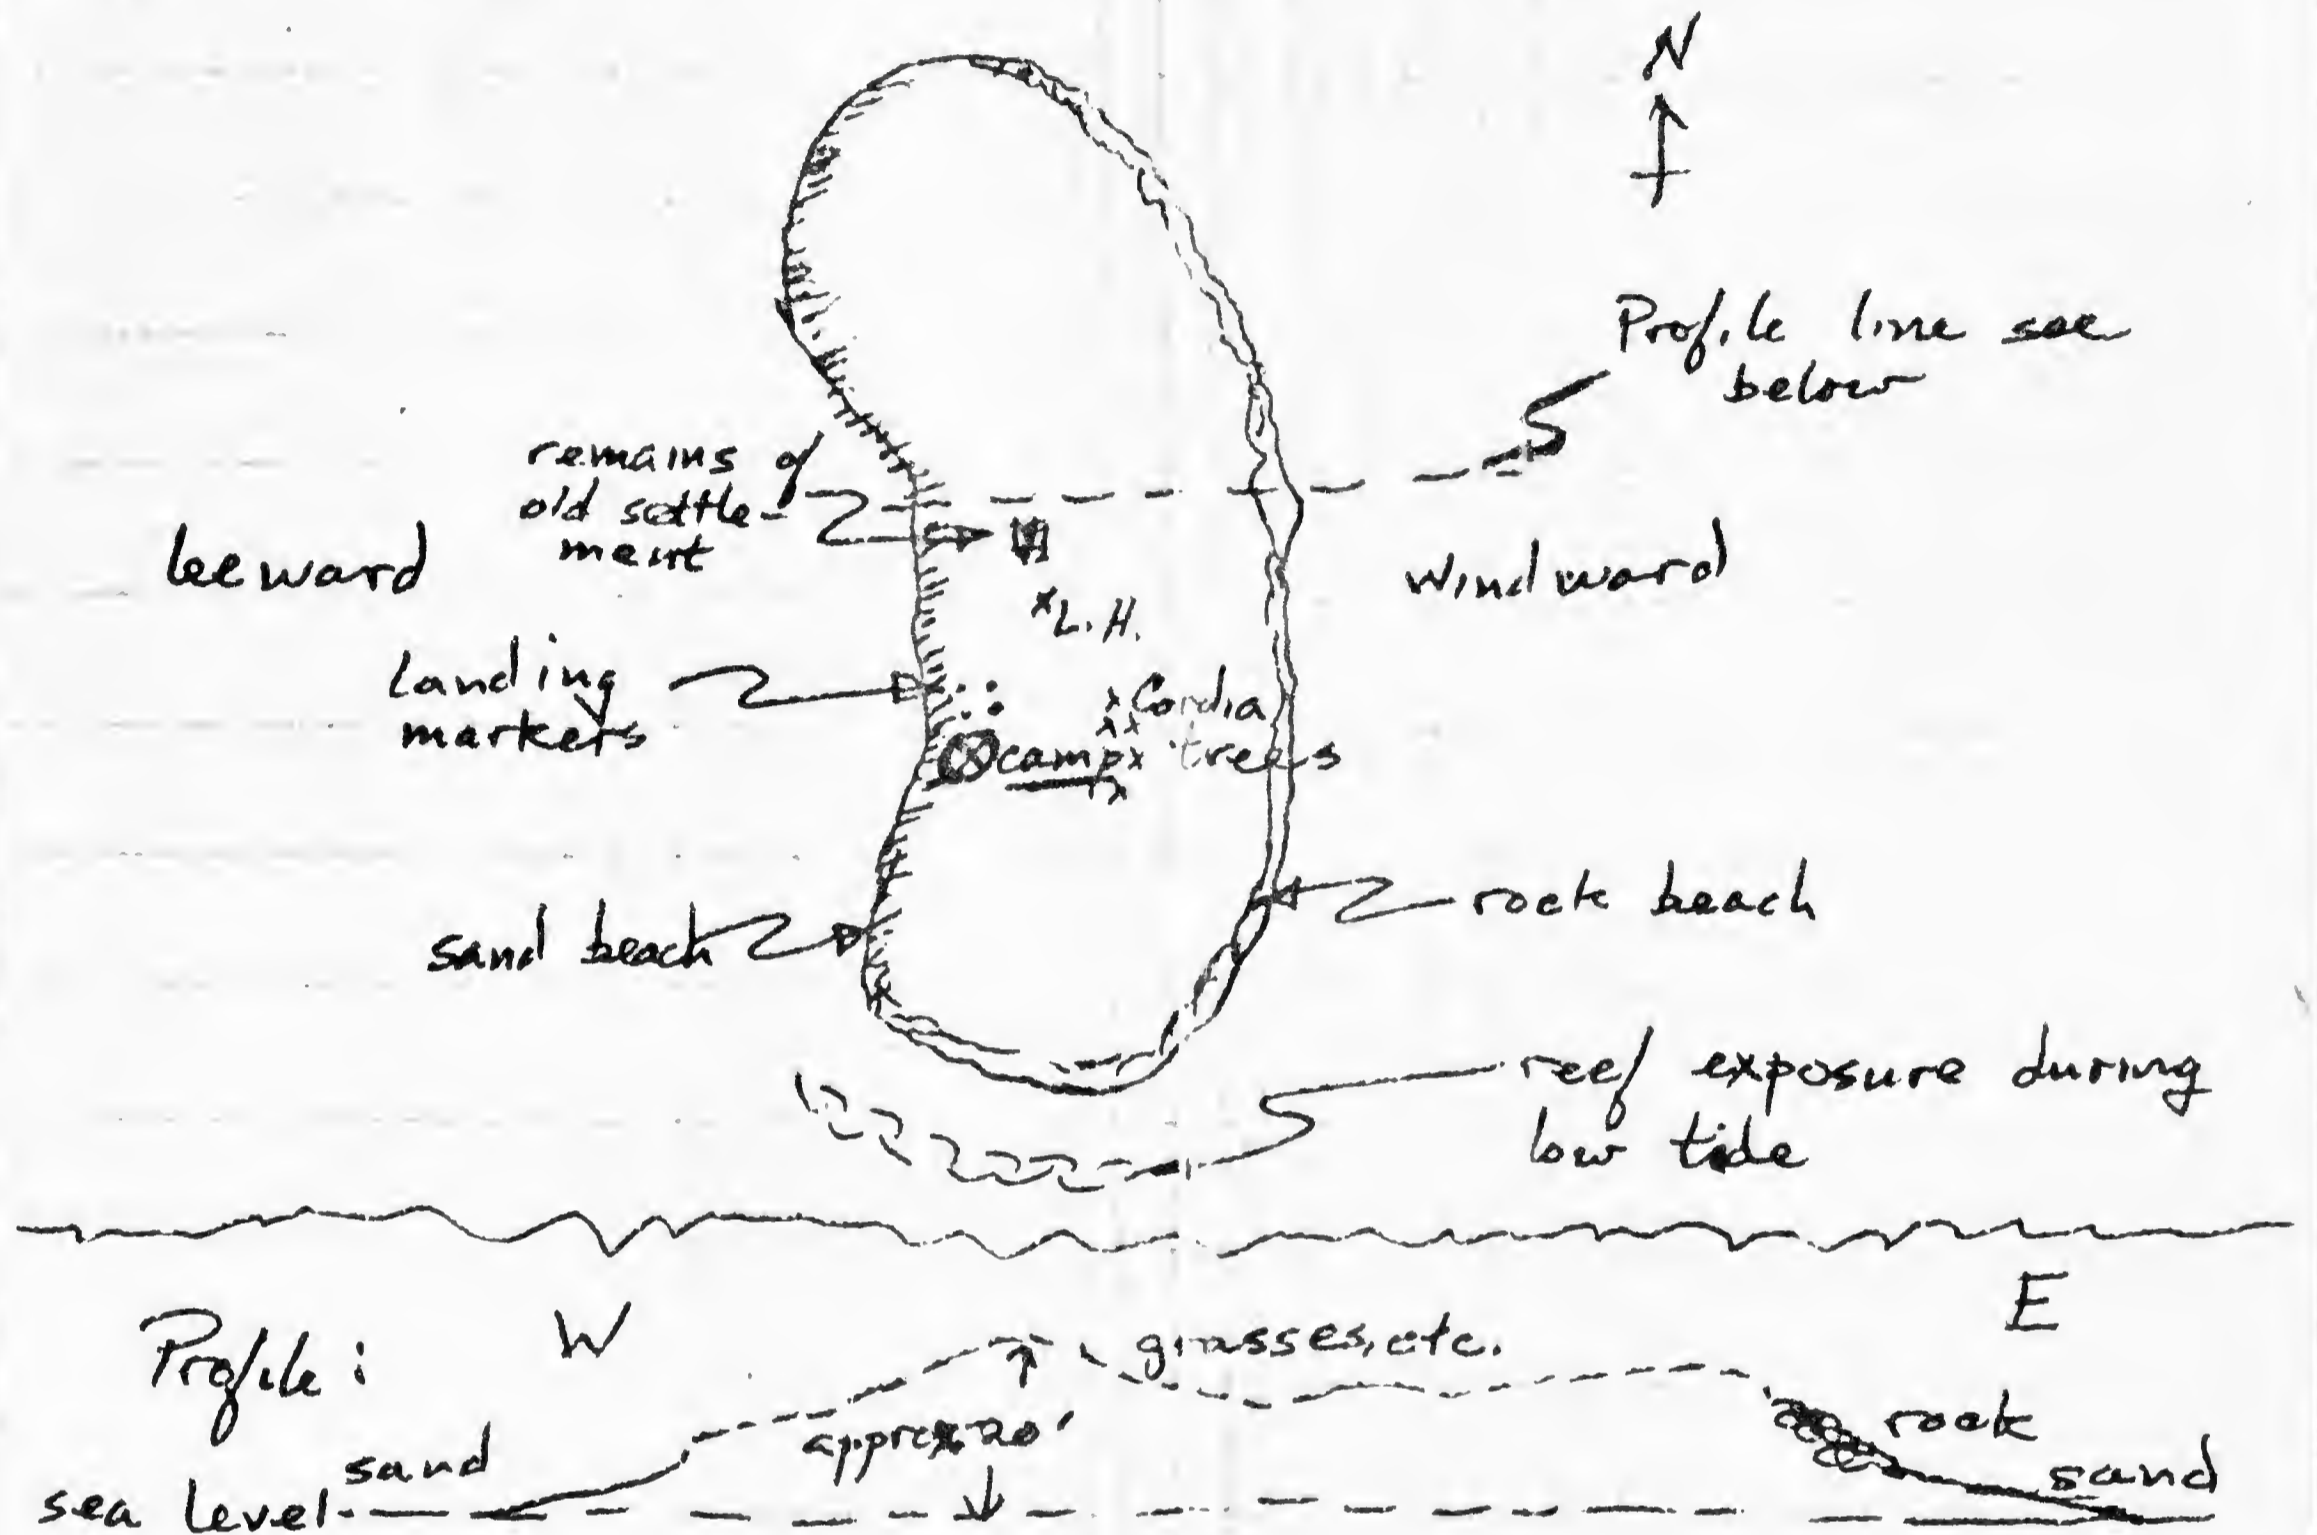 N
Profile line see
below
remains of
old settle-
ment
leeward
windward
L.H.
Landing
markers
Cordia
trees
camp
rock beach
sand beach
reef exposure during
low tide
Profile:
W
E
grasses, etc.
approx 20'
rock
sand
sand
sea level